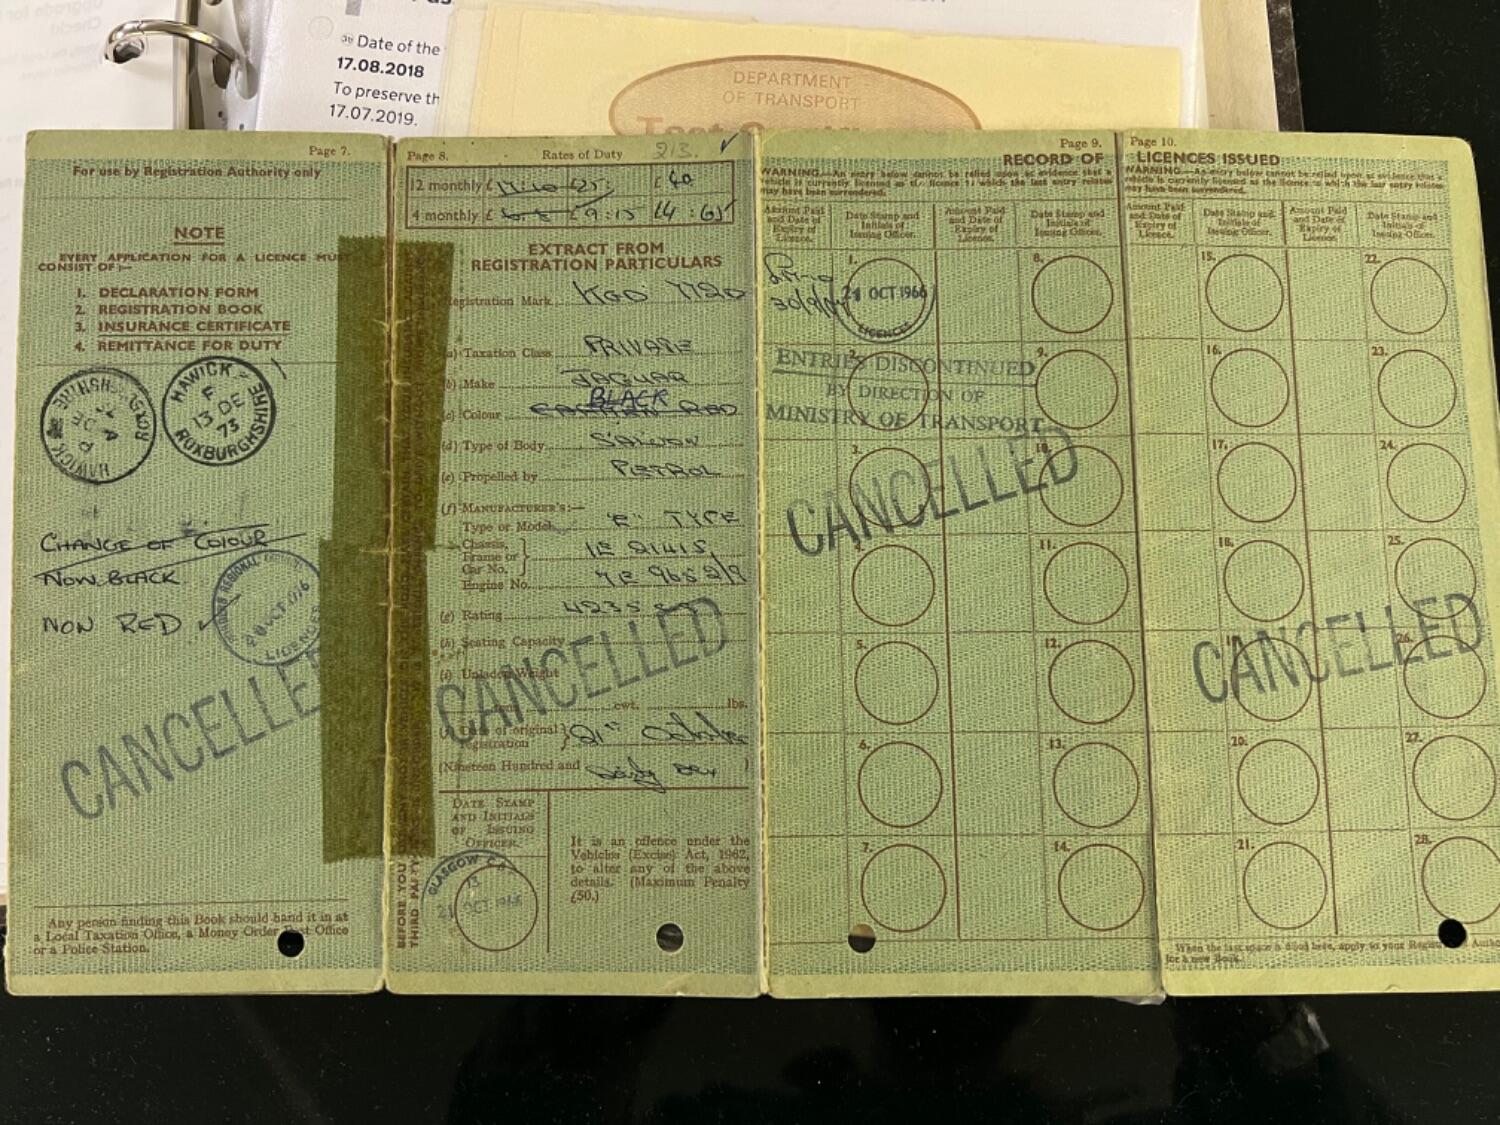 Date of the
17.08.2018
To preserve th
17.07.2019.
DEPARTMENT
OF TRANSPORT
Page 7.
For use by Registration Authority only
NOTE
EVERY APPLICATION FOR A LICENCE MUST
CONSIST OF :—
1. DECLARATION FORM
2. REGISTRATION BOOK
3. INSURANCE CERTIFICATE
4. REMITTANCE FOR DUTY
HAWICK
ROXBURGHSHIRE
HAWICK
F
13 DE
73
ROXBURGHSHIRE
CHANGE OF COLOUR
NOW BLACK
NON RED
LICENCES
CANCELLED
Any person finding this Book should hand it in at
a Local Taxation Office, a Money Order Post Office
or a Police Station.
Page 8.
Rates of Duty
213.
12 monthly £ 25: £ 40
4 monthly £ £9:15 14 : 65
EXTRACT FROM
REGISTRATION PARTICULARS
Registration Mark
(a) Taxation Class PRIVATE
(b) Make JAGUAR
BLACK
(c) Colour RED
(d) Type of Body SALOON
(e) Propelled by PETROL
(f) MANUFACTURER'S:—
Type or Model "E" TYPE
Chassis,
Frame or
Car No. 1E 21415
Engine No. 7E 9652/9
(g) Rating 4235
(h) Seating Capacity
(i) Unladen Weight
cwt. lbs.
CANCELLED
Date of original
registration 21st October
(Nineteen Hundred and Sixty Six )
DATE STAMP
AND INITIALS
OF ISSUING
OFFICER.
GLASGOW
13
21 OCT 1966
It is an offence under the
Vehicles (Excise) Act, 1962,
to alter any of the above
details. (Maximum Penalty
£50.)
BEFORE YOU
THIRD PARTY
Page 9.
RECORD OF
WARNING.—An entry below cannot be relied upon as evidence that a
vehicle is currently licensed as the licence to which the last entry relates
may have been surrendered.
Amount Paid
and Date of
Expiry of
Licence.
Date Stamp and
Initials of
Issuing Officer.
Amount Paid
and Date of
Expiry of
Licence.
Date Stamp and
Initials of
Issuing Officer.
1.
21 OCT 1966
LICENCES
8.
ENTRIES DISCONTINUED
BY DIRECTION OF
MINISTRY OF TRANSPORT
2.
9.
3.
10.
CANCELLED
4.
11.
5.
12.
6.
13.
7.
14.
Page 10.
LICENCES ISSUED
WARNING.—An entry below cannot be relied upon as evidence that a
vehicle is currently licensed as the licence to which the last entry relates
may have been surrendered.
Amount Paid
and Date of
Expiry of
Licence.
Date Stamp and
Initials of
Issuing Officer.
Amount Paid
and Date of
Expiry of
Licence.
Date Stamp and
Initials of
Issuing Officer.
15.
22.
16.
23.
17.
24.
18.
25.
19.
26.
CANCELLED
20.
27.
21.
28.
When the last space is filled here, apply to your Registration Autho
for a new Book.